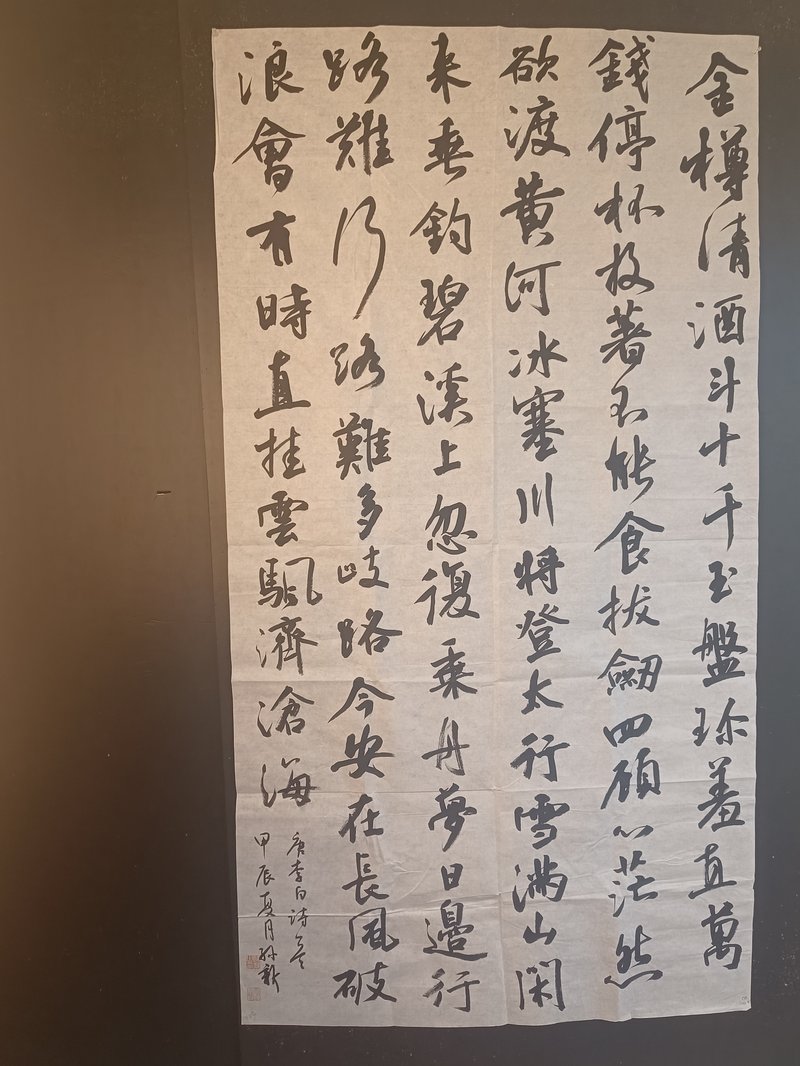 金樽清酒斗十千玉盤珎羞直萬
錢停杯投著不能食拔劒四顧心茫然
欲渡黄河冰塞川將登太行雪滿山閑
来垂釣碧溪上忽復乘舟夢日邊行
路難行路難多岐路今安在長風破
浪會有時直挂雲颿濟滄海
唐李白詩一首
甲辰夏月孫新